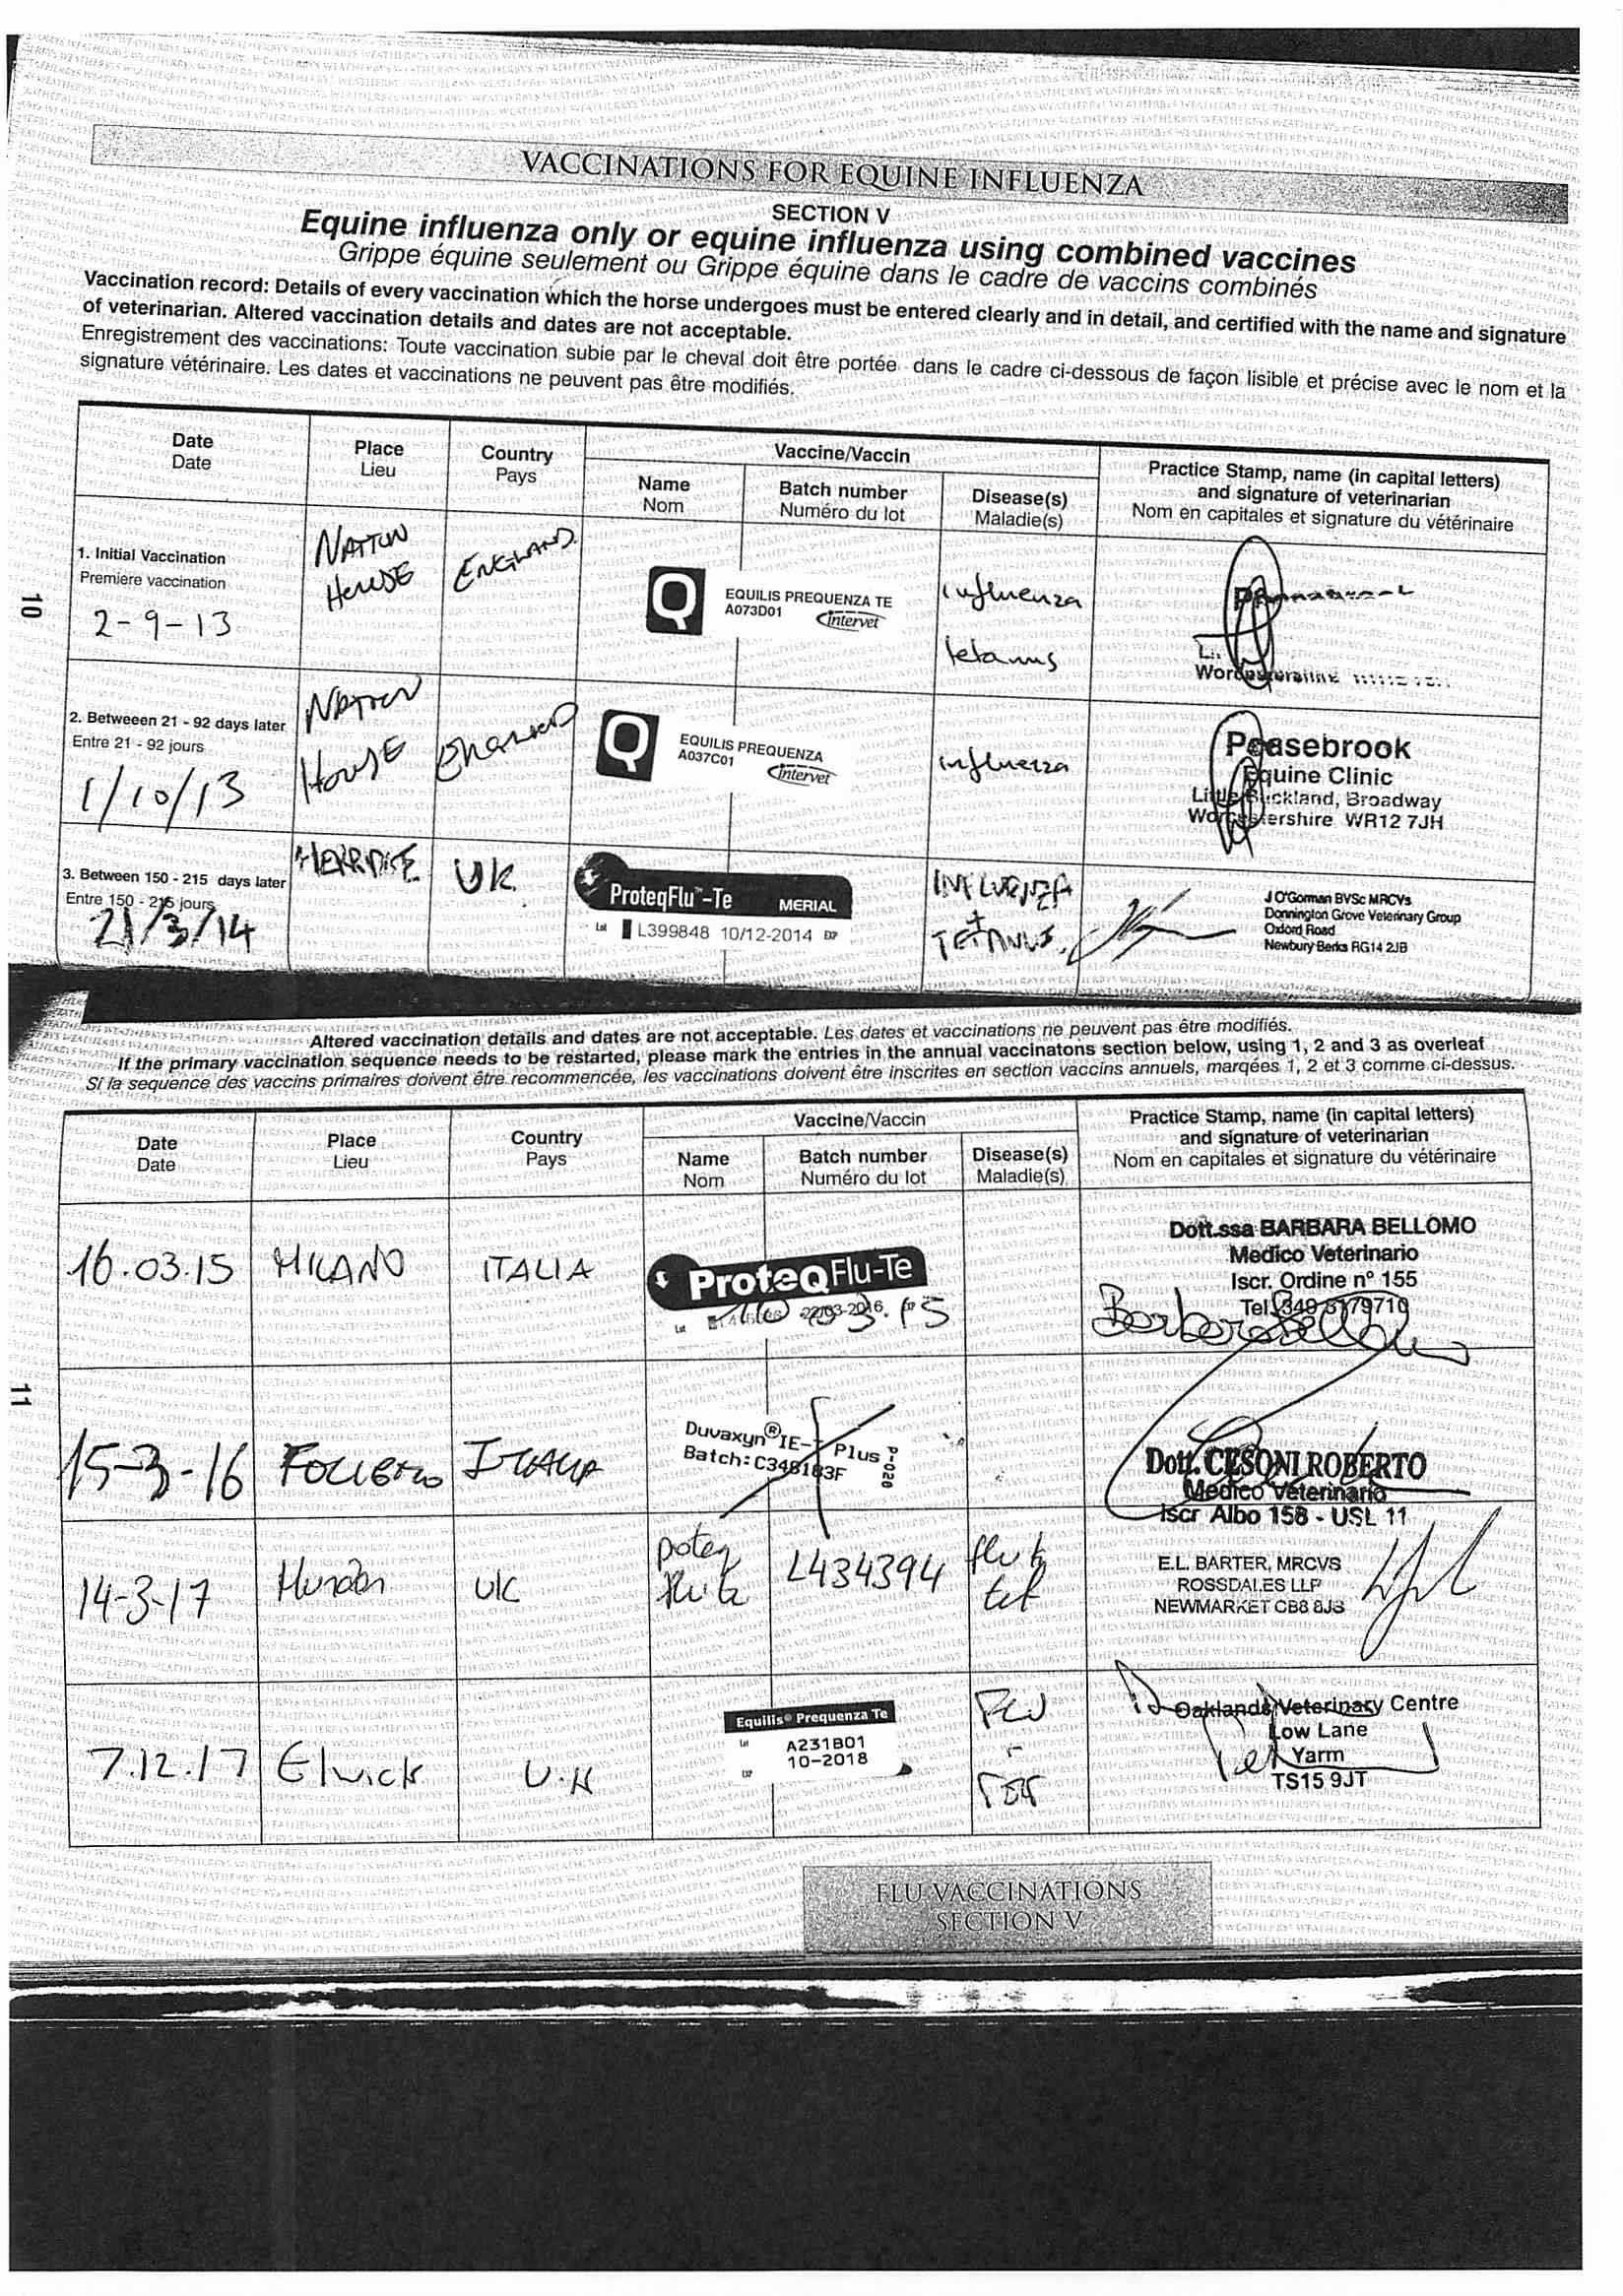 VACCINATIONS FOR EQUINE INFLUENZA
SECTION V
Equine influenza only or equine influenza using combined vaccines
Grippe équine seulement ou Grippe équine dans le cadre de vaccins combinés
Vaccination record: Details of every vaccination which the horse undergoes must be entered clearly and in detail, and certified with the name and signature
of veterinarian. Altered vaccination details and dates are not acceptable.
Enregistrement des vaccinations: Toute vaccination subie par le cheval doit être portée dans le cadre ci-dessous de façon lisible et précise avec le nom et la
signature vétérinaire. Les dates et vaccinations ne peuvent pas être modifiés.
Date
Date
Place
Lieu
Country
Pays
Vaccine/Vaccin
Name
Nom
Batch number
Numéro du lot
Disease(s)
Maladie(s)
Practice Stamp, name (in capital letters)
and signature of veterinarian
Nom en capitales et signature du vétérinaire
10
1. Initial Vaccination
Premiere vaccination
2-9-13
NATTON
HOUSE
ENGLAND
Q
EQUILIS PREQUENZA TE
A073D01
Intervet
influenza
tetanus
2. Betweeen 21 - 92 days later
Entre 21 - 92 jours
1/10/13
NATTON
HOUSE
England
Q
EQUILIS PREQUENZA
A037C01
Intervet
influenza
Peasebrook
Equine Clinic
Little Buckland, Broadway
Worcestershire WR12 7JH
3. Between 150 - 215 days later
Entre 150 - 215 jours
21/3/14
UK
ProteqFlu™-Te MERIAL
Lot L399848 10/12-2014 EXP
INFLUENZA
+
TETANUS.
J O'Gorman BVSc MRCVs
Donnington Grove Veterinary Group
Oxford Road
Newbury Berks RG14 2JB
Altered vaccination details and dates are not acceptable. Les dates et vaccinations ne peuvent pas être modifiés.
If the primary vaccination sequence needs to be restarted, please mark the entries in the annual vaccinatons section below, using 1, 2 and 3 as overleaf
Si la sequence des vaccins primaires doivent être recommencée, les vaccinations doivent être inscrites en section vaccins annuels, marqées 1, 2 et 3 comme ci-dessus.
Date
Date
Place
Lieu
Country
Pays
Vaccine/Vaccin
Name
Nom
Batch number
Numéro du lot
Disease(s)
Maladie(s)
Practice Stamp, name (in capital letters)
and signature of veterinarian
Nom en capitales et signature du vétérinaire
16.03.15
MILANO
ITALIA
ProteqFlu-Te
Lot
Dott.ssa BARBARA BELLOMO
Medico Veterinario
Iscr. Ordine n° 155
Barbara Bellomo
11
15-3-16
ITALIA
Duvaxyn® IE-T Plus
Batch: C346183F
P-020
Dott. CESONI ROBERTO
Medico Veterinario
Iscr Albo 158 - USL 11
14-3-17
UK
L434394
flu &
tet
E.L. BARTER, MRCVS
ROSSDALES LLP
NEWMARKET CB8 8JS
7.12.17
Elwick
U.K
Equilis® Prequenza Te
Lot A231B01
EXP 10-2018
FLU
TET
Oaklands Veterinary Centre
Low Lane
Yarm
TS15 9JT
FLU VACCINATIONS
SECTION V